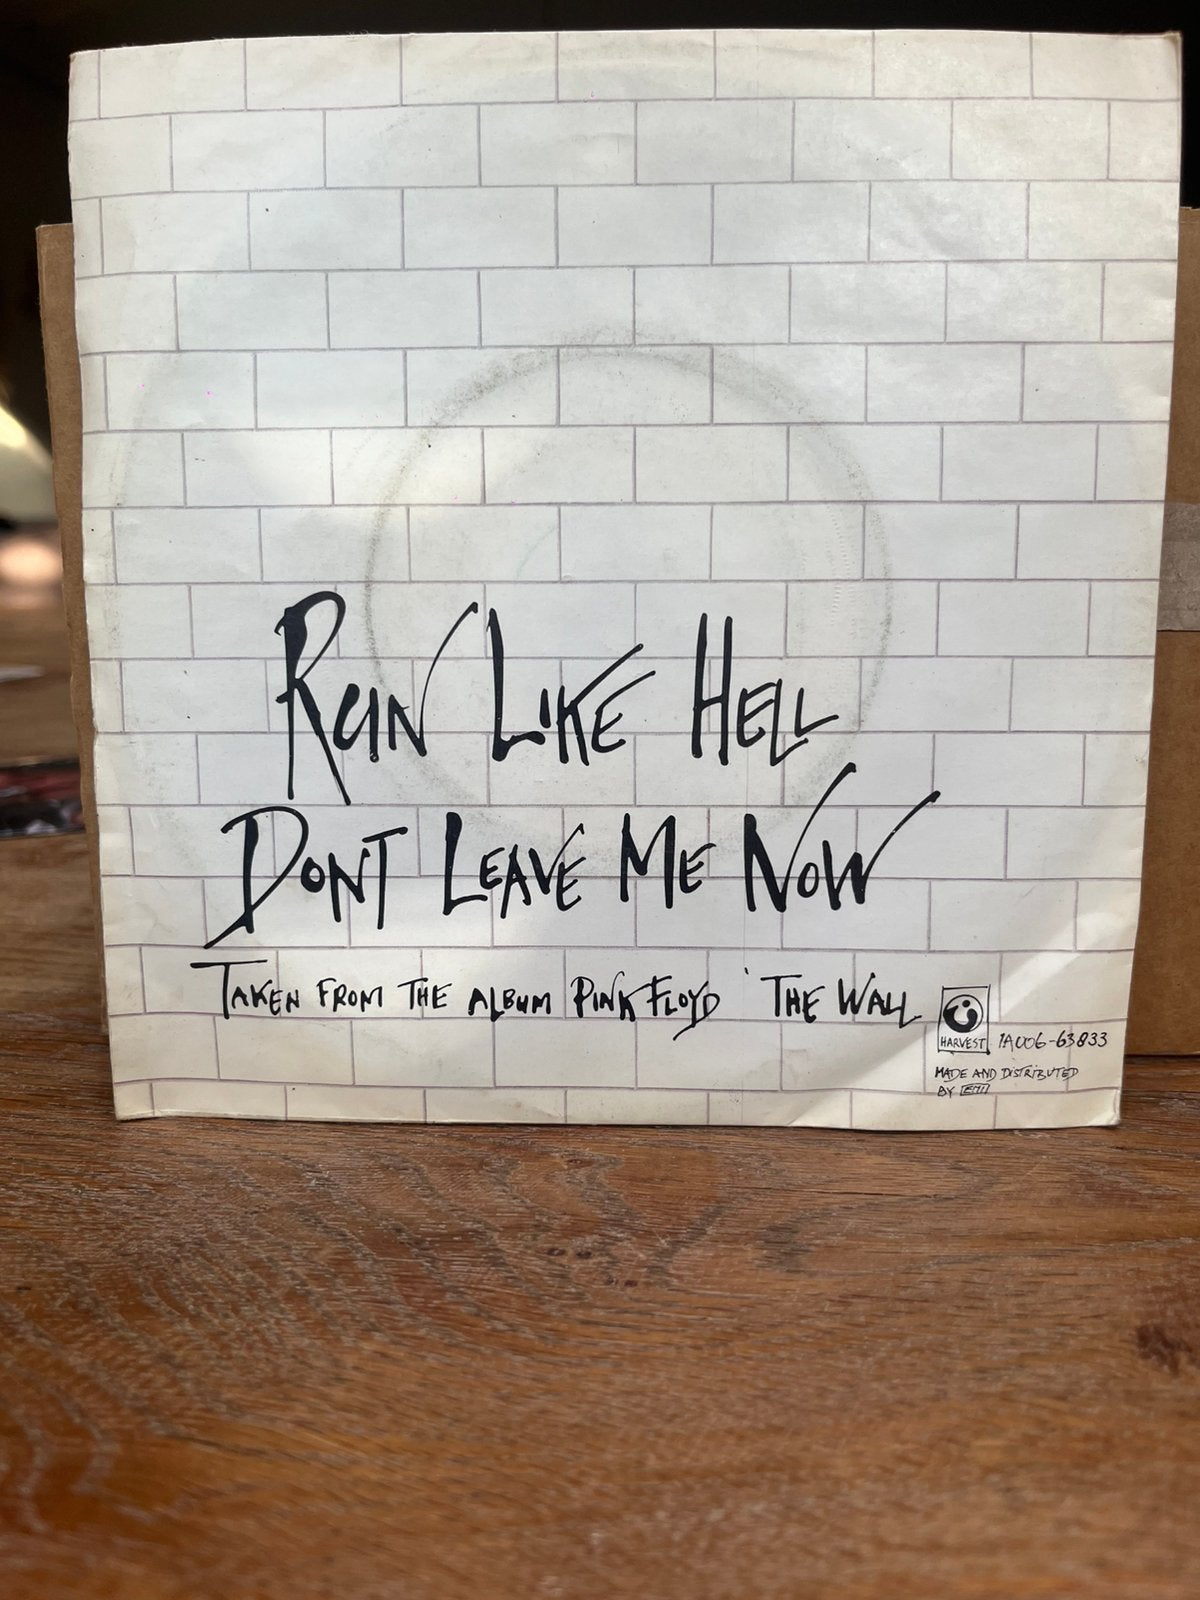 RUN LIKE HELL
DONT LEAVE ME NOW
TAKEN FROM THE ALBUM PINK FLOYD 'THE WALL
HARVEST 1A006-63833
MADE AND DISTRIBUTED
BY EMI